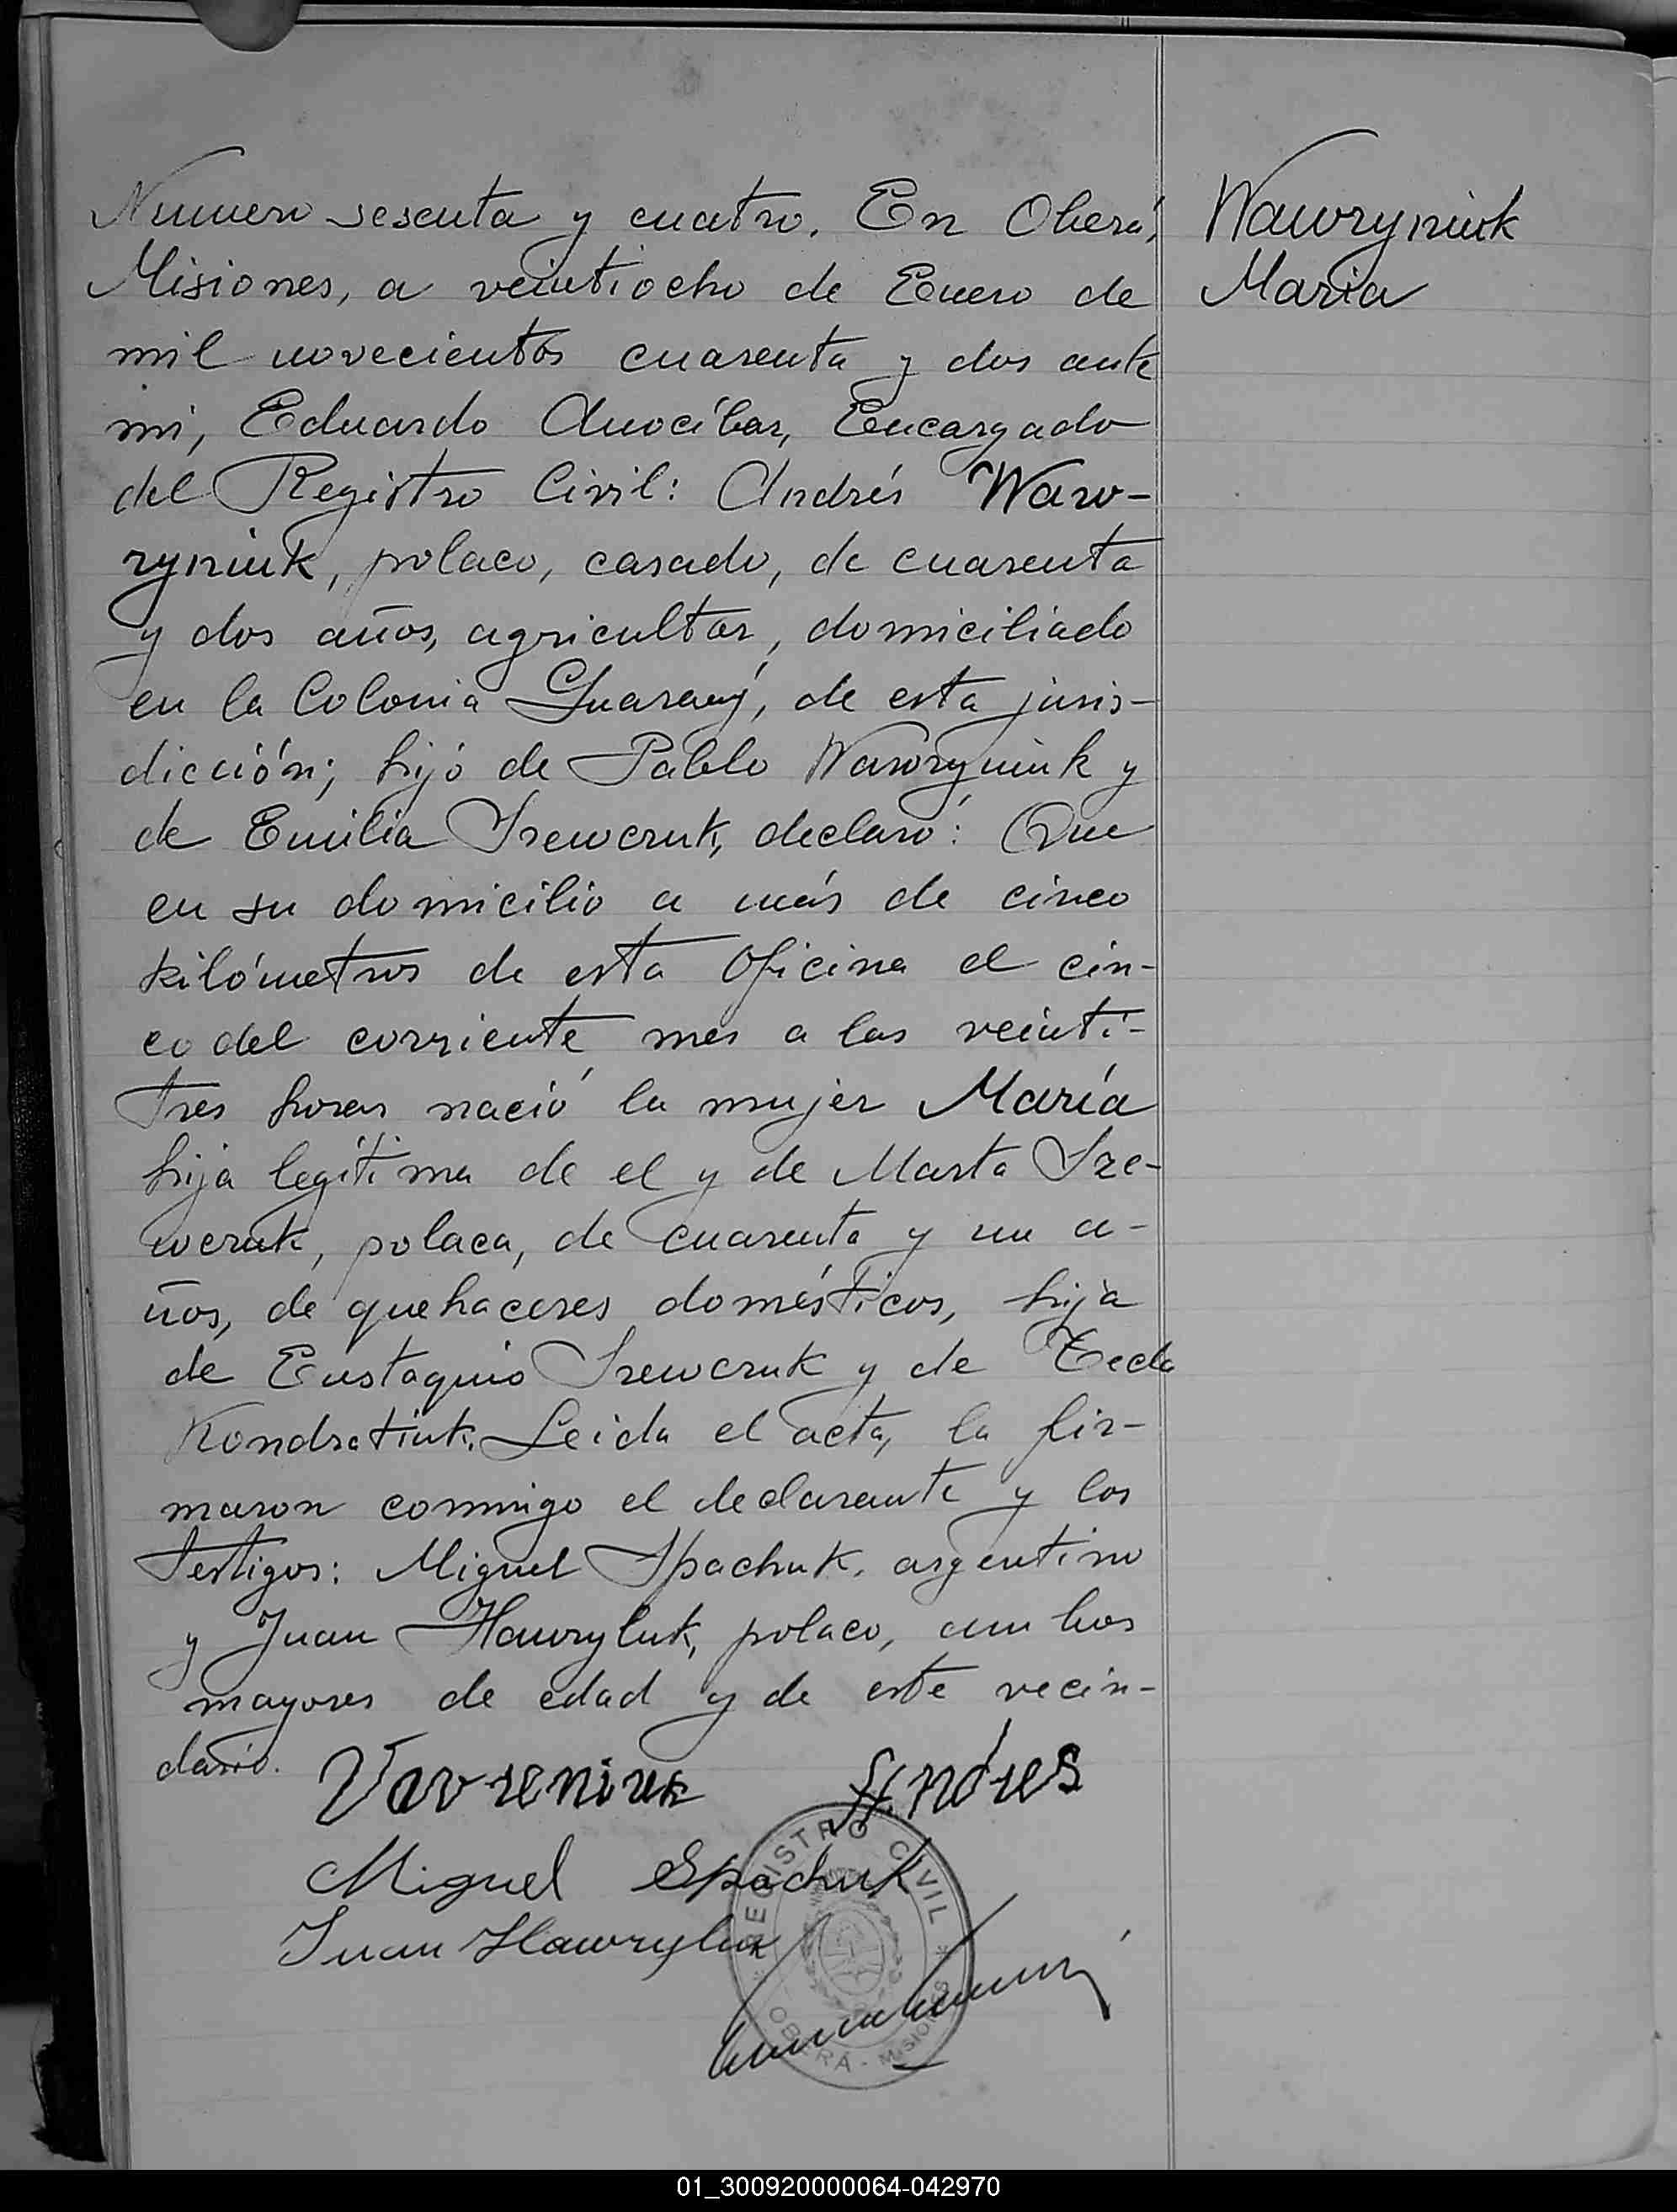 Numero sesenta y cuatro. En Oberá,
Misiones, a veintiocho de Enero de
mil novecientos cuarenta y dos ante
mi, Eduardo Anocíbar, Encargado
del Registro Civil: Andrés Waw-
ryniuk, polaco, casado, de cuarenta
y dos años, agricultor, domiciliado
en la Colonia Guarany, de esta juris-
dicción; hijo de Pablo Wawryniuk y
de Emilia Szewczuk, declaró: Que
en su domicilio a más de cinco
kilómetros de esta Oficina el cin-
co del corriente mes a las veinti-
tres horas nació la mujer María
hija legítima de el y de Marta Sze-
wczuk, polaca, de cuarenta y un a-
ños, de quehaceres domésticos, hija
de Eustaquio Szewczuk y de Tecla
Kondratiuk. Leida el acta, la fir-
maron conmigo el declarante y los
testigos: Miguel Spachuk, argentino
y Juan Hawryluk, polaco, ambos
mayores de edad y de este vecin-
dario.
Wawryniuk
Maria
Vavreniuk Andres
Miguel Spachuk
Juan Hawryluk
REGISTRO CIVIL
OBERÁ - MISIONES
01_300920000064-042970